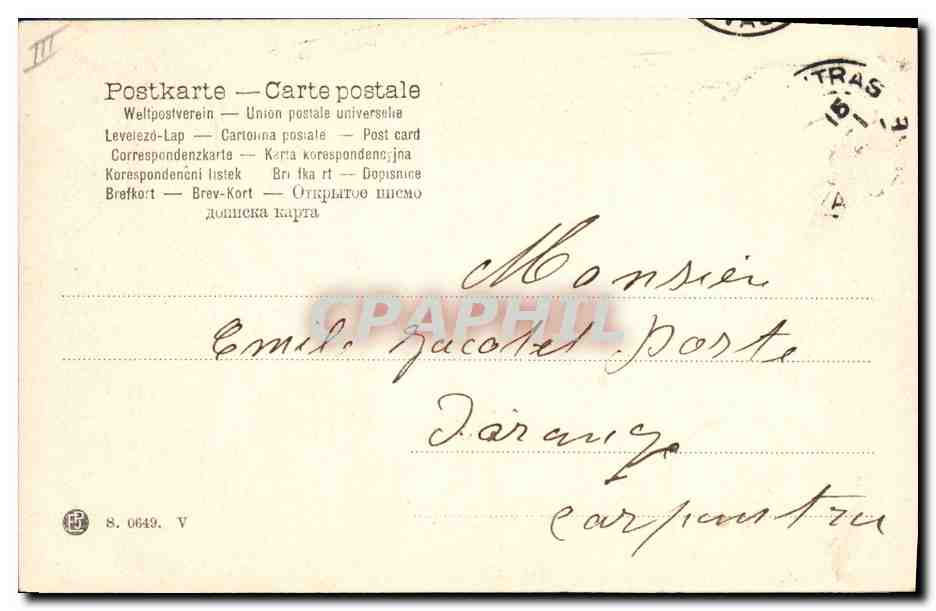 III
VAU
TRAS
15
Postkarte — Carte postale
Weltpostverein — Union postale universelle
Levelező-Lap — Cartolina postale — Post card
Correspondenzkarte — Karta korespondencyjna
Korespondenční lístek Brefkart — Dopisnice
Brefkort — Brev-Kort — Открытое письмо
дописка карта
Monsieur
CPAPHIL
Emile Jacotet Porte
D'orange
Carpentras
S. 0649. V